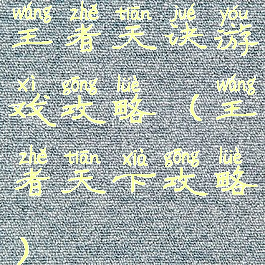 wáng zhě tiān jué yóu
王者天决游
xì gōng lüè wáng
戏攻略(王
zhě tiān xià gōng lüè
者天下攻略
)